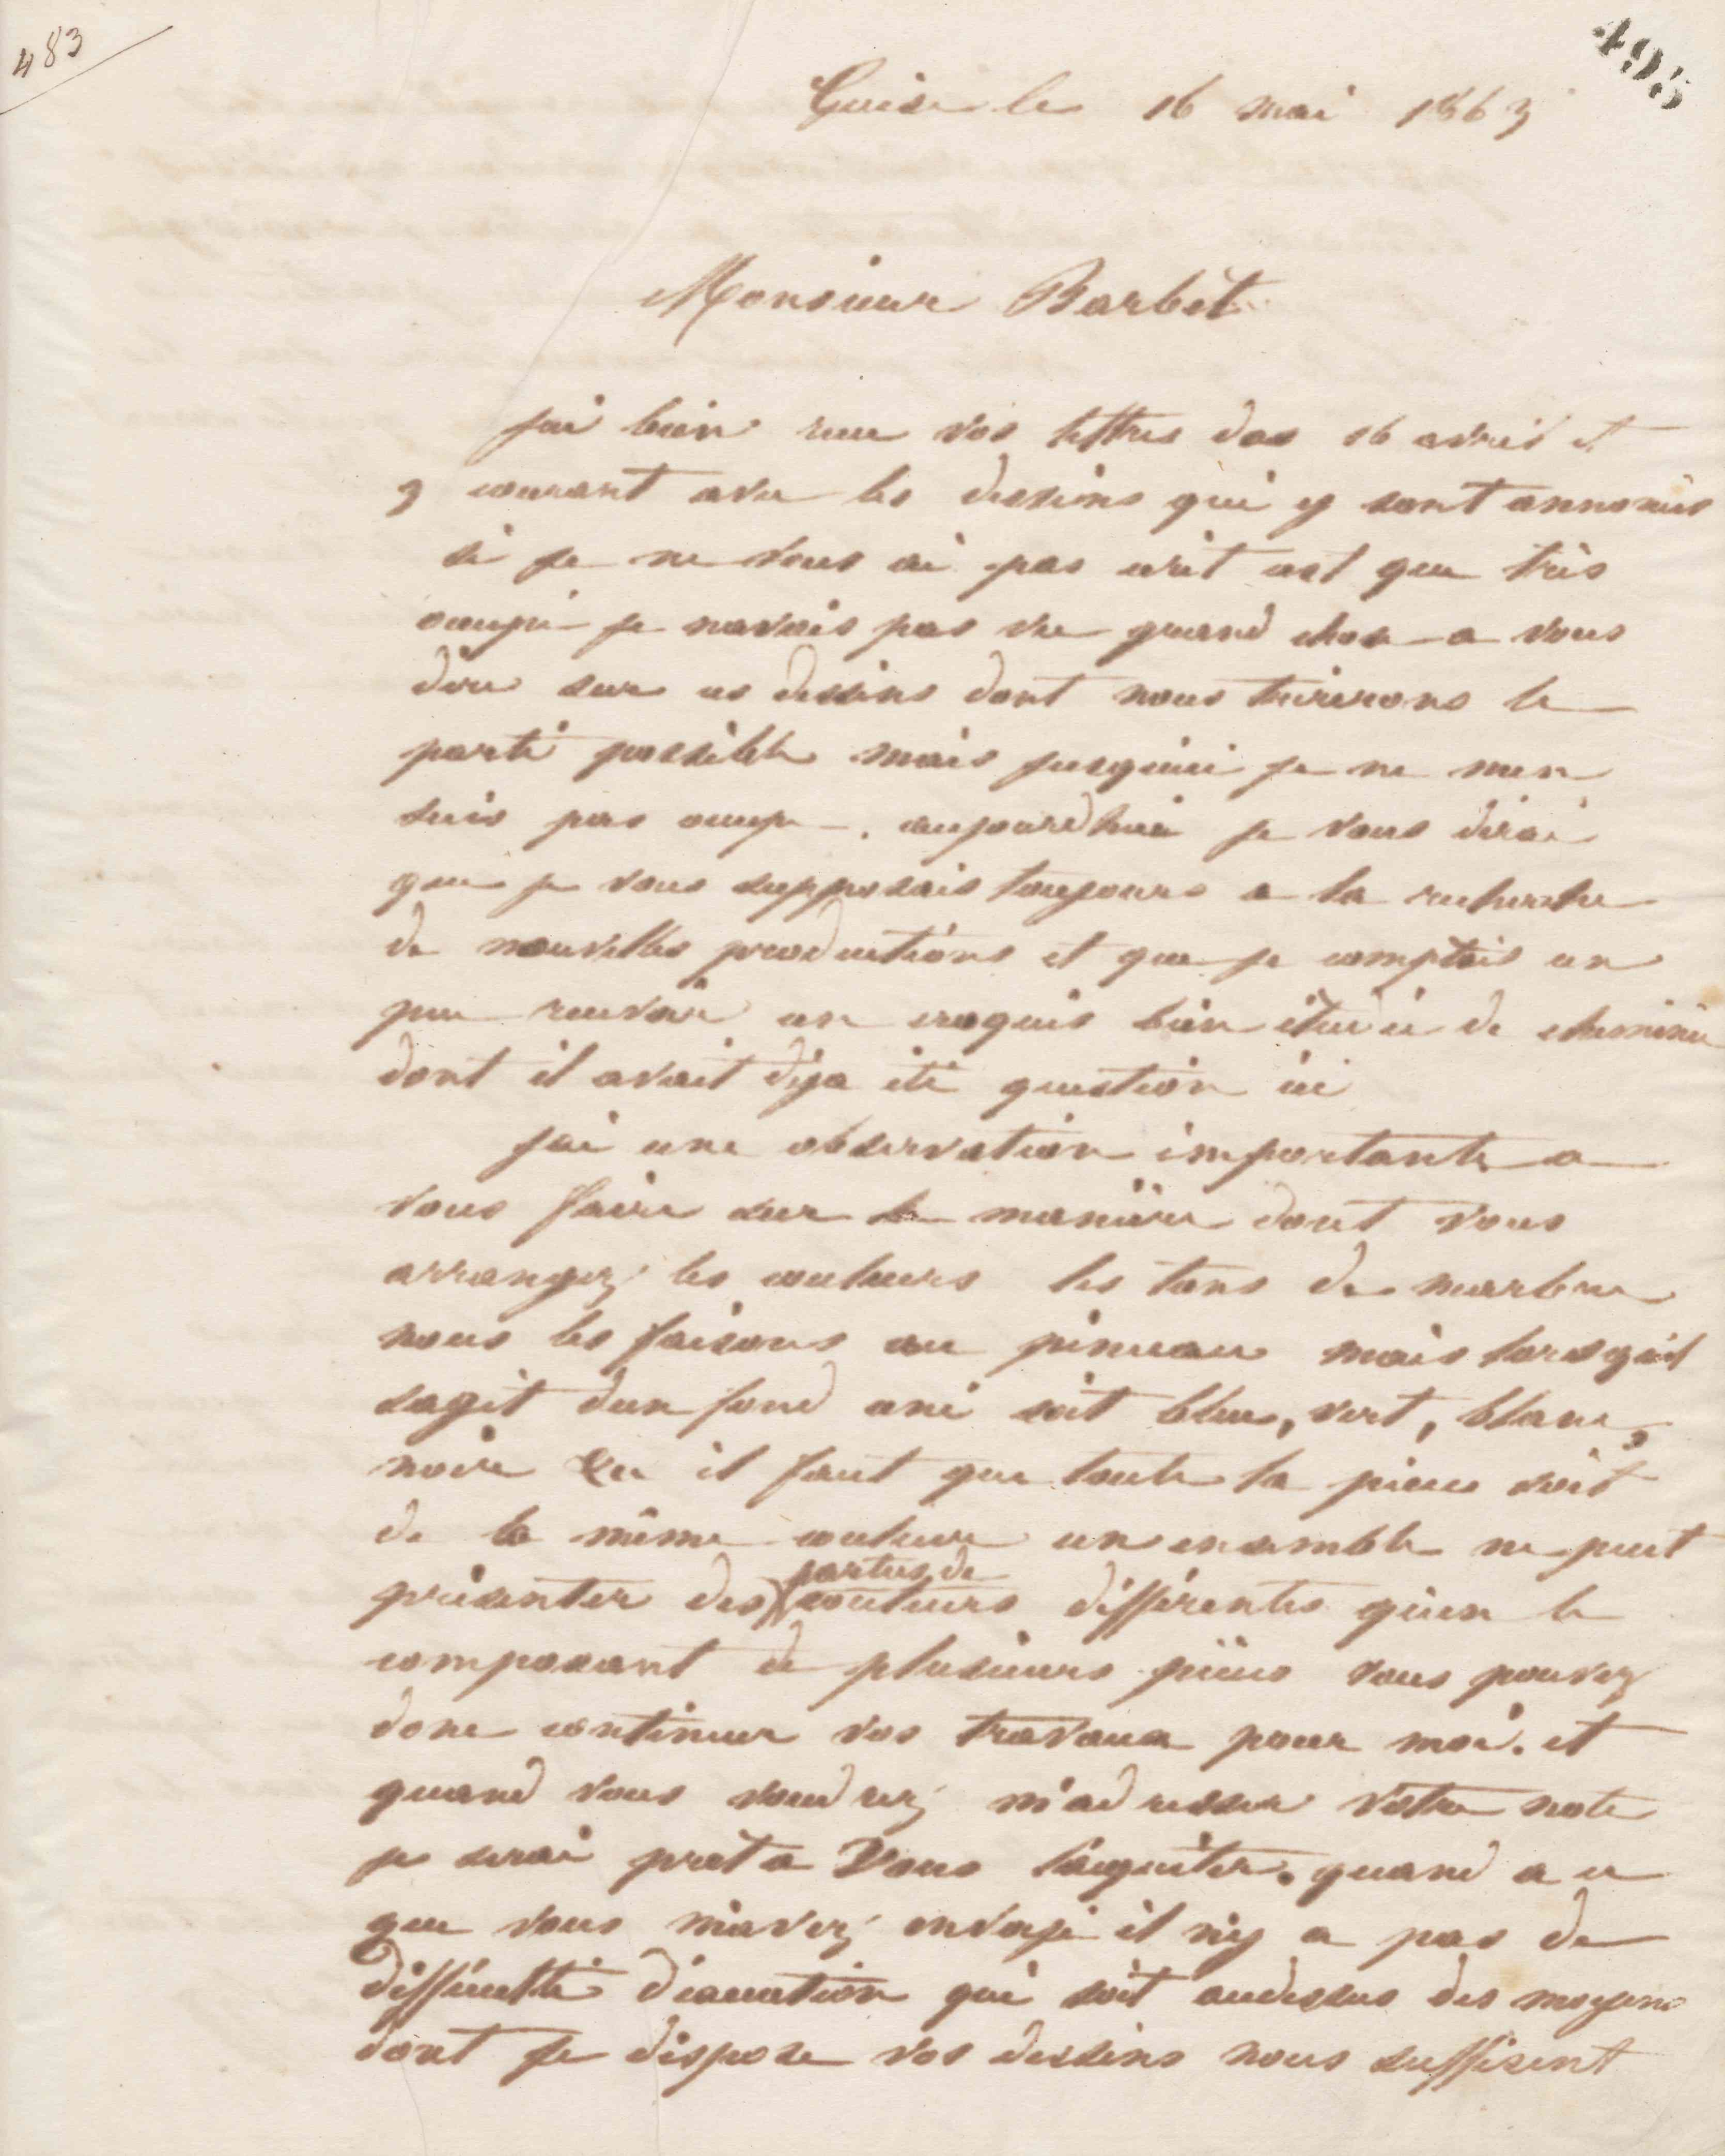 483
495
Guise le 16 mai 1863
Monsieur Barbet
jai bien recu vos lettres des 16 avril et
9 courant avec les dessins qui y sont annoncés
si je ne vous ai pas écrit cest que très
occupé je navais pas vu grand chose a vous
dire sur ces dessins dont nous tirerons le
parti possible mais jusquici je ne men
suis pas occupé. aujourdhui je vous dirai
que je vous supposais toujours a la recherche
de nouvelles productions et que je comptais un
peu recevoir un croquis bien étudié de cheminée
dont il avait déja été question ici
jai une observation importante a
vous faire sur la manière dont vous
arrangez les couleurs les tons de marbre
nous les faisons au pinceau mais lorsquil
sagit dun fond uni soit bleu, vert, blanc,
noir &a il faut que toute la pièce soit
de la même couleur un ensemble ne peut
présenter des parties de couleurs différentes quen le
composant de plusieurs pièces vous pouvez
donc continuer vos travaux pour moi. et
quand vous voudrez m'adresser votre note
je serai prêt a vous lacquiter. quand a ce
que vous mavez envoyé il ny a pas de
difficulté déxécution qui soit audessus des moyens
dont je dispose vos dessins nous suffisent